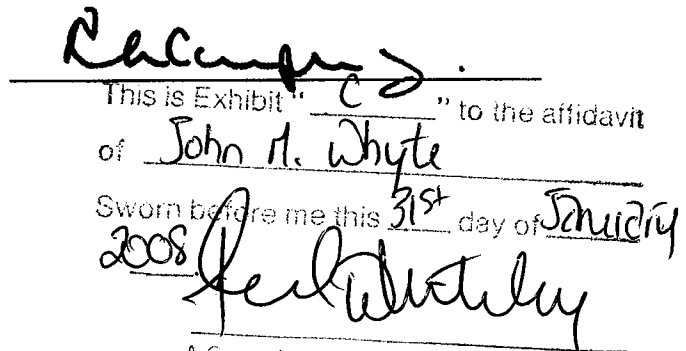 This is Exhibit " C " to the affidavit
of John M. Whyte
Sworn before me this 31st day of January
2008